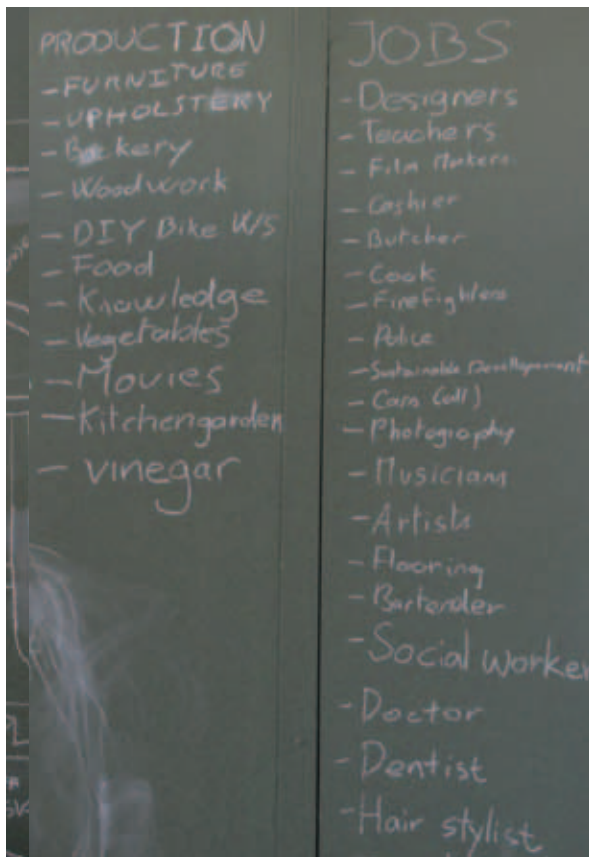 PRODUCTION
- FURNITURE
- UPHOLSTERY
- Bakery
- Woodwork
- DIY Bike W/S
- Food
- Knowledge
- Vegetables
- Movies
- Kitchengarden
- vinegar
JOBS
- Designers
- Teachers
- Film Makers
- Cashier
- Butcher
- Cook
- FireFighters
- Police
- Sustainable Devellopement
- Cam (all)
- Photography
- Musicians
- Artists
- Flooring
- Bartender
- Social worker
- Doctor
- Dentist
- Hair stylist